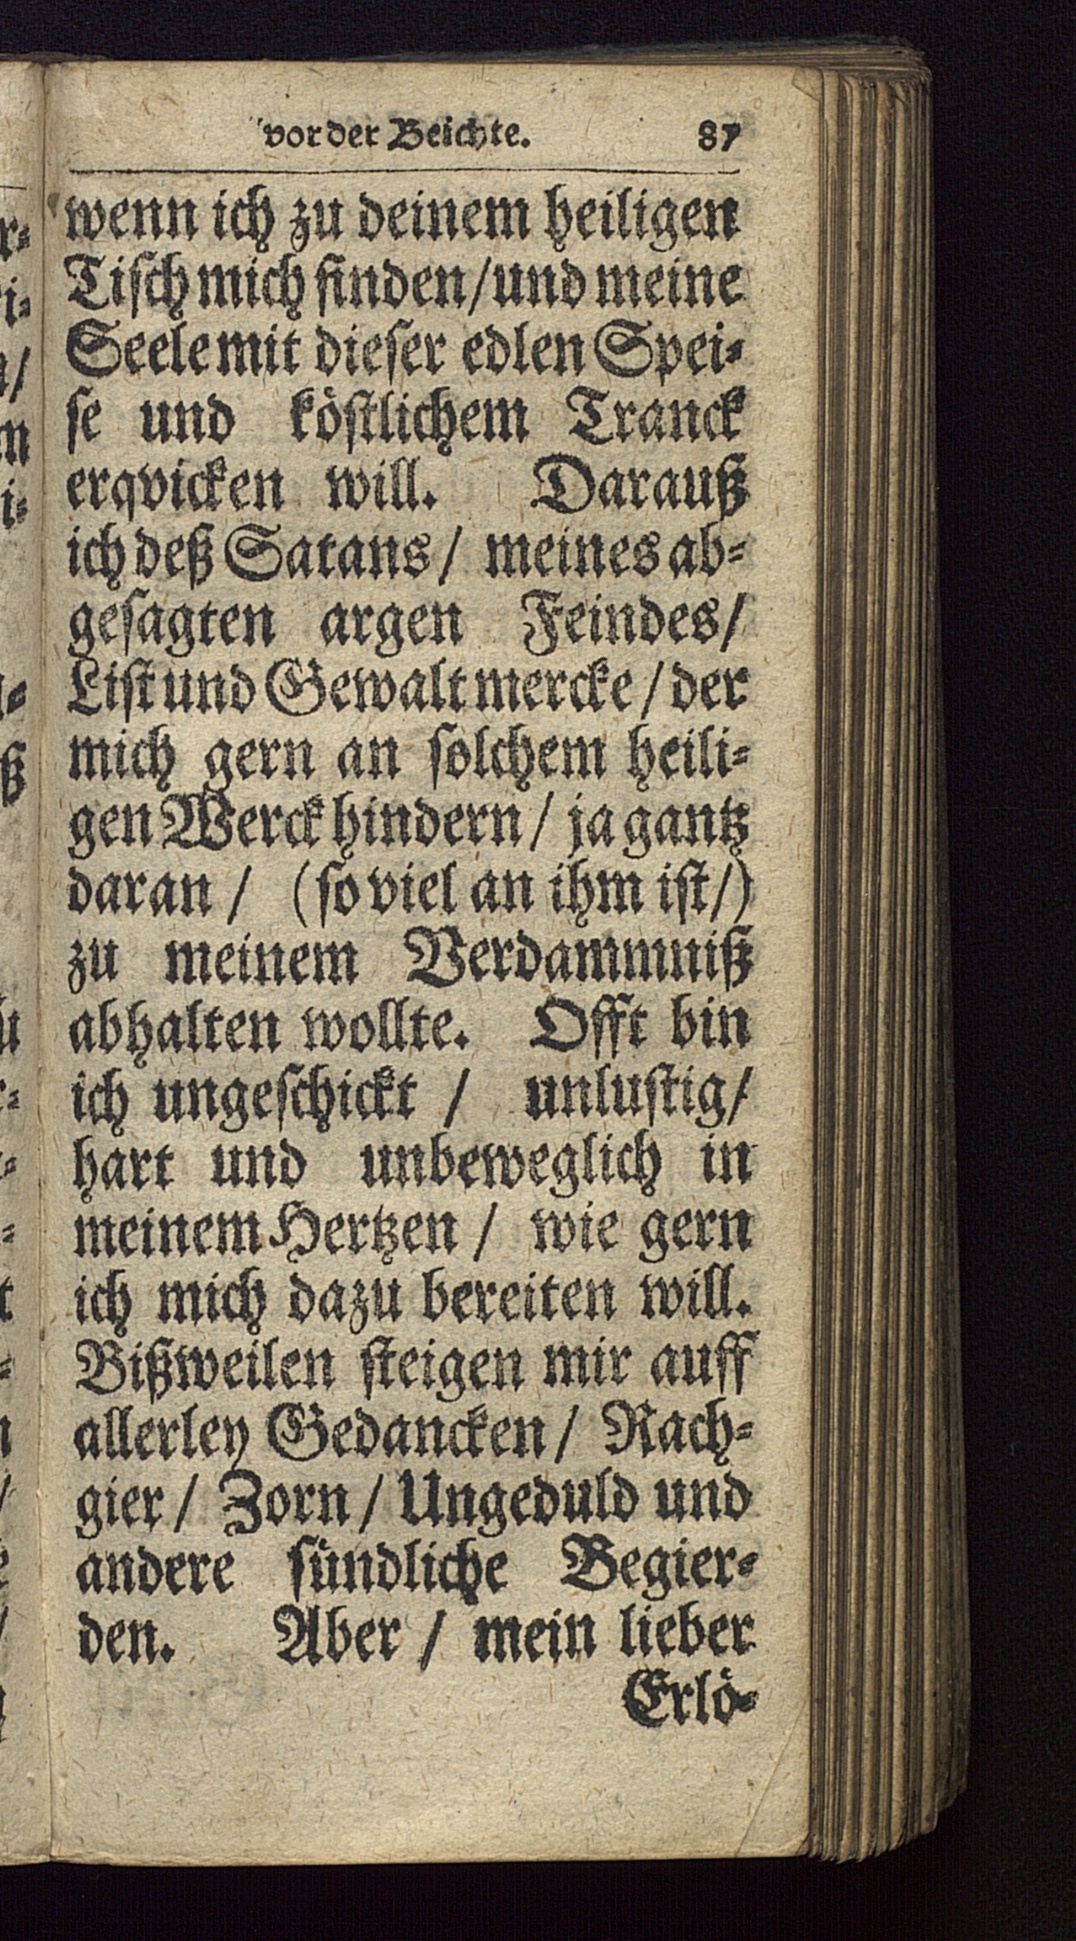 vor der Beichte. 87
wenn ich zu deinem heiligen
Tisch mich finden/und meine
Seele mit dieser edlen Spei-
se und köstlichem Tranck
erqvicken will. Darauß
ich deß Satans/ meines ab-
gesagten argen Feindes/
List und Gewalt mercke/der
mich gern an solchem heili-
gen Werck hindern/ ja gantz
daran/ (so viel an ihm ist/)
zu meinem Verdammniß
abhalten wollte. Offt bin
ich ungeschickt / unlustig/
hart und unbeweglich in
meinem Hertzen / wie gern
ich mich dazu bereiten will.
Bißweilen steigen mir auff
allerley Gedancken/ Rach-
gier/ Zorn/Ungeduld und
andere sündliche Begier-
den. Aber / mein lieber
Erlö-